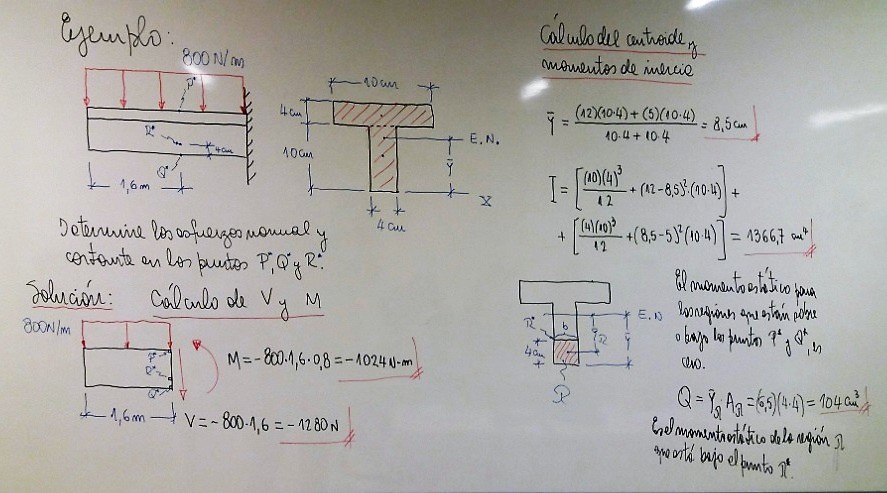 Ejemplo:
800 N/m
P*
R*
4cm
Q*
1,6m
10cm
4cm
10cm
E.N.
Ȳ
X
4cm
Determine los esfuerzos normal y
cortante en los puntos P*, Q* y R*.
Solución: Cálculo de V y M
800N/m
P*
R*
Q*
1,6m
M = -800·1,6·0,8 = -1024 N-m
V = -800·1,6 = -1280 N
Cálculo del centroide y
momentos de inercia
Ȳ = (12)(10·4) + (5)(10·4) / 10·4 + 10·4 = 8,5cm
I = [(10)(4)³/12 + (12-8,5)²·(10·4)] +
+ [(4)(10)³/12 + (8,5-5)²(10·4)] = 1366,7 cm⁴
E.N
R*
b
4cm
Ȳ
El momento estático para
las regiones que están sobre
o bajo los puntos P* y Q*, es
cero.
Q = Ȳ_R · A_R = (6,5)(4·4) = 104 cm³
Es el momento estático de la región R
que está bajo el punto R*.